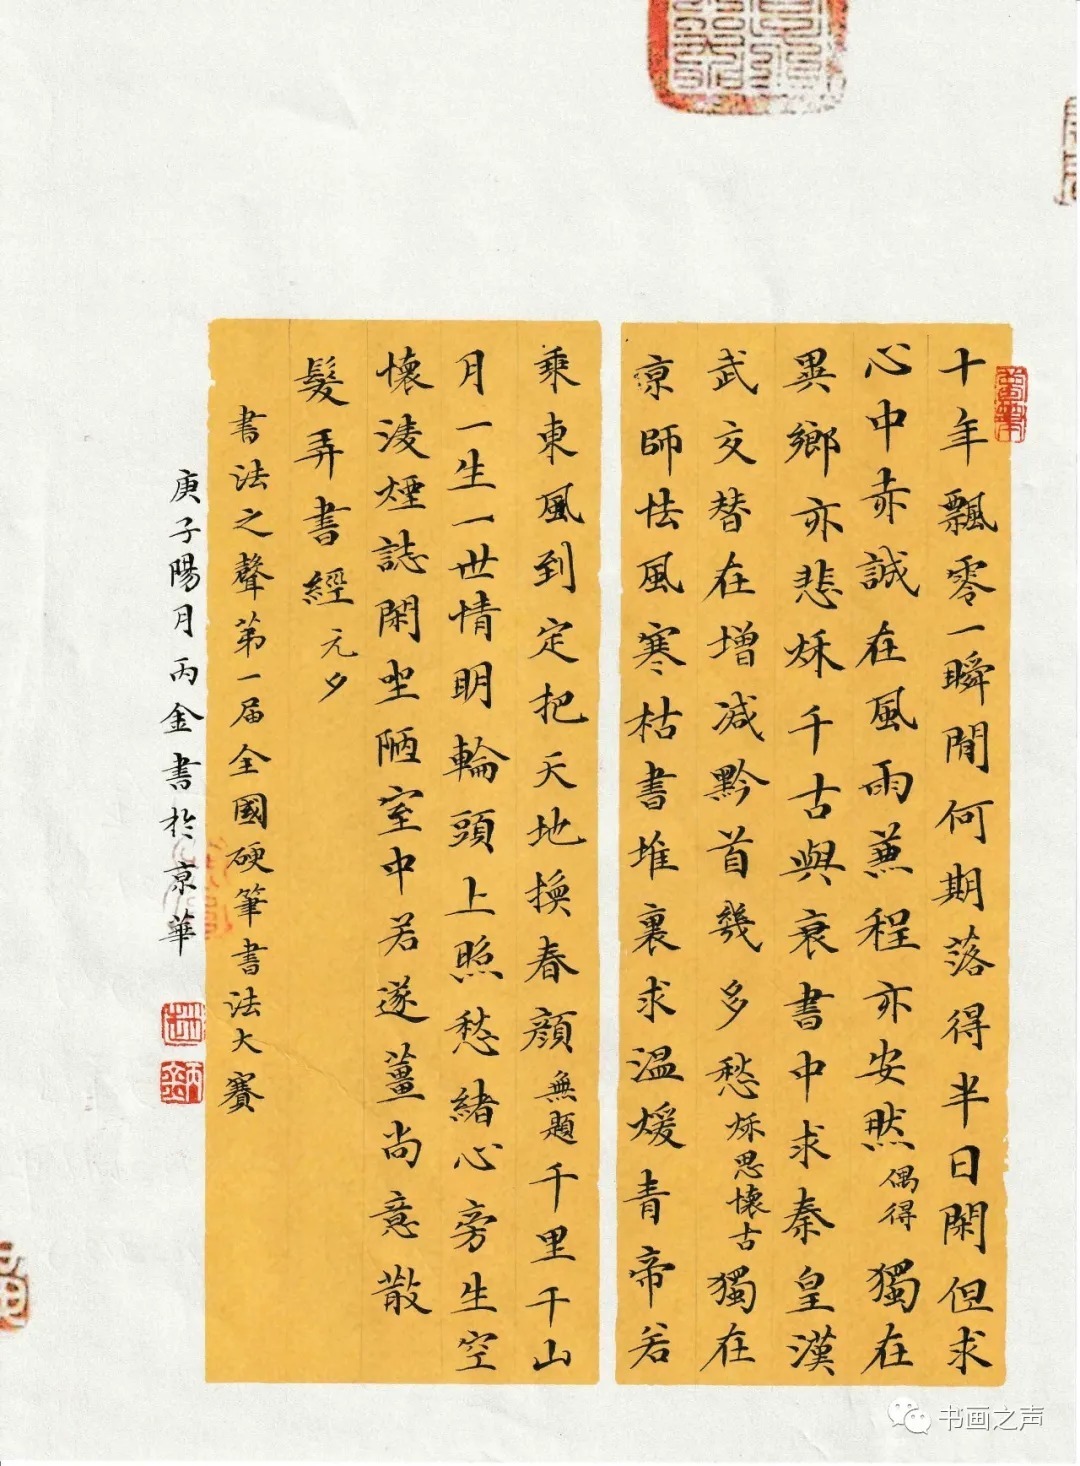 十年飄零一瞬閒何期落得半日閑但求
心中赤誠在風雨兼程亦安然偶得獨在
異鄉亦悲秌千古與衰書中求秦皇漢
武交替在增減黔首幾多愁秌思懷古獨在
京師怯風寒枯書堆裏求溫煖青帝若
乘東風到定把天地換春顏無題千里千山
月一生一世情明輪頭上照愁緒心旁生空
懷淩煙誌閑坐陋室中若遂薑尚意散
髮弄書經元夕
書法之聲第一届全國硬筆書法大賽
庚子陽月丙金書於京華
书画之声